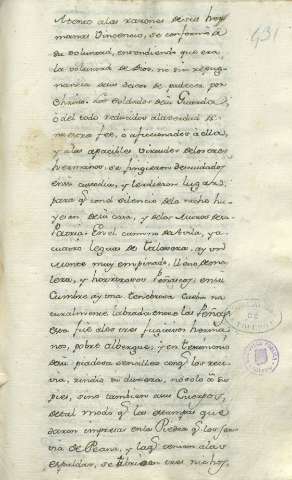 431
Atento a las razones de su her
mano Vincencio, se conformó à
su voluntad, entendiendo que era
la voluntad de Dios, no sin repug
nancia de sus deseos de padecer por
Christo. Los soldados de su Guarda,
ò del todo reducidos a la verdad de
nuestra fee, ò aficionados à ella,
y a las apacibles virtudes de los tres
hermanos, se fingieron descuidados
en su custodia, y les dieron lugar,
para q con el silencio de la noche hu
yesen de su casa, y de los Muros de su
Patria. En el camino de Avila, y a
cuatro leguas de Talavera, ay un
monte muy empinado, lleno de ma
leza, y horrorosos Peñascos, en su
Cumbre ay una tenebrosa Cueba na
turalmente labrada entre las Peñas,
esta fue a los tres fugitivos herma
nos, pobre albergue, y en testimonio
de su piadosa sencilles con q los reci
via, rindio su dureza, no solo à sus
pies, sino tambien à sus Cuerpos,
de tal modo q las estampas que
daron impresas en la Piedra q les ser
via de Peana, y la q tenian a las
espaldas, se abrieron tres nichos,